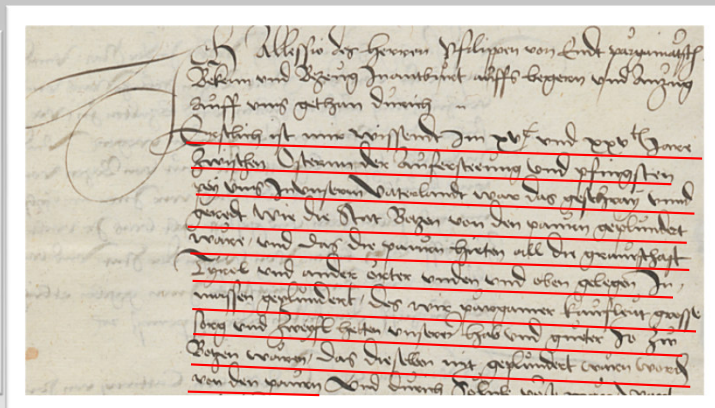 Ich Allessio des herren Philippen von Endt purgamasch
Beken und Bezeug In antwurt alss begeren und Anzug
auff uns gethan durich
Erstlich ist mir wissendt Im xvc und xxvten Jare
zwischen Ostern der aufersteeung und pfingsten
pey uns In unserm Vaterlandt war das geschray und
geredt wie die Stat Bozen von den pauren geplundert
ware, und das die pauren hieten all die graueschaft
Tyrol und ander örter unden und oben gelegen In
massen geplundert, des wir purgamer kaufleut grosse
sorg und Zweyfl hetten unserer hab und gueter so zu
Bozen waren, das dieselben nit geplundert waren word
von den pauren Und durich Solich